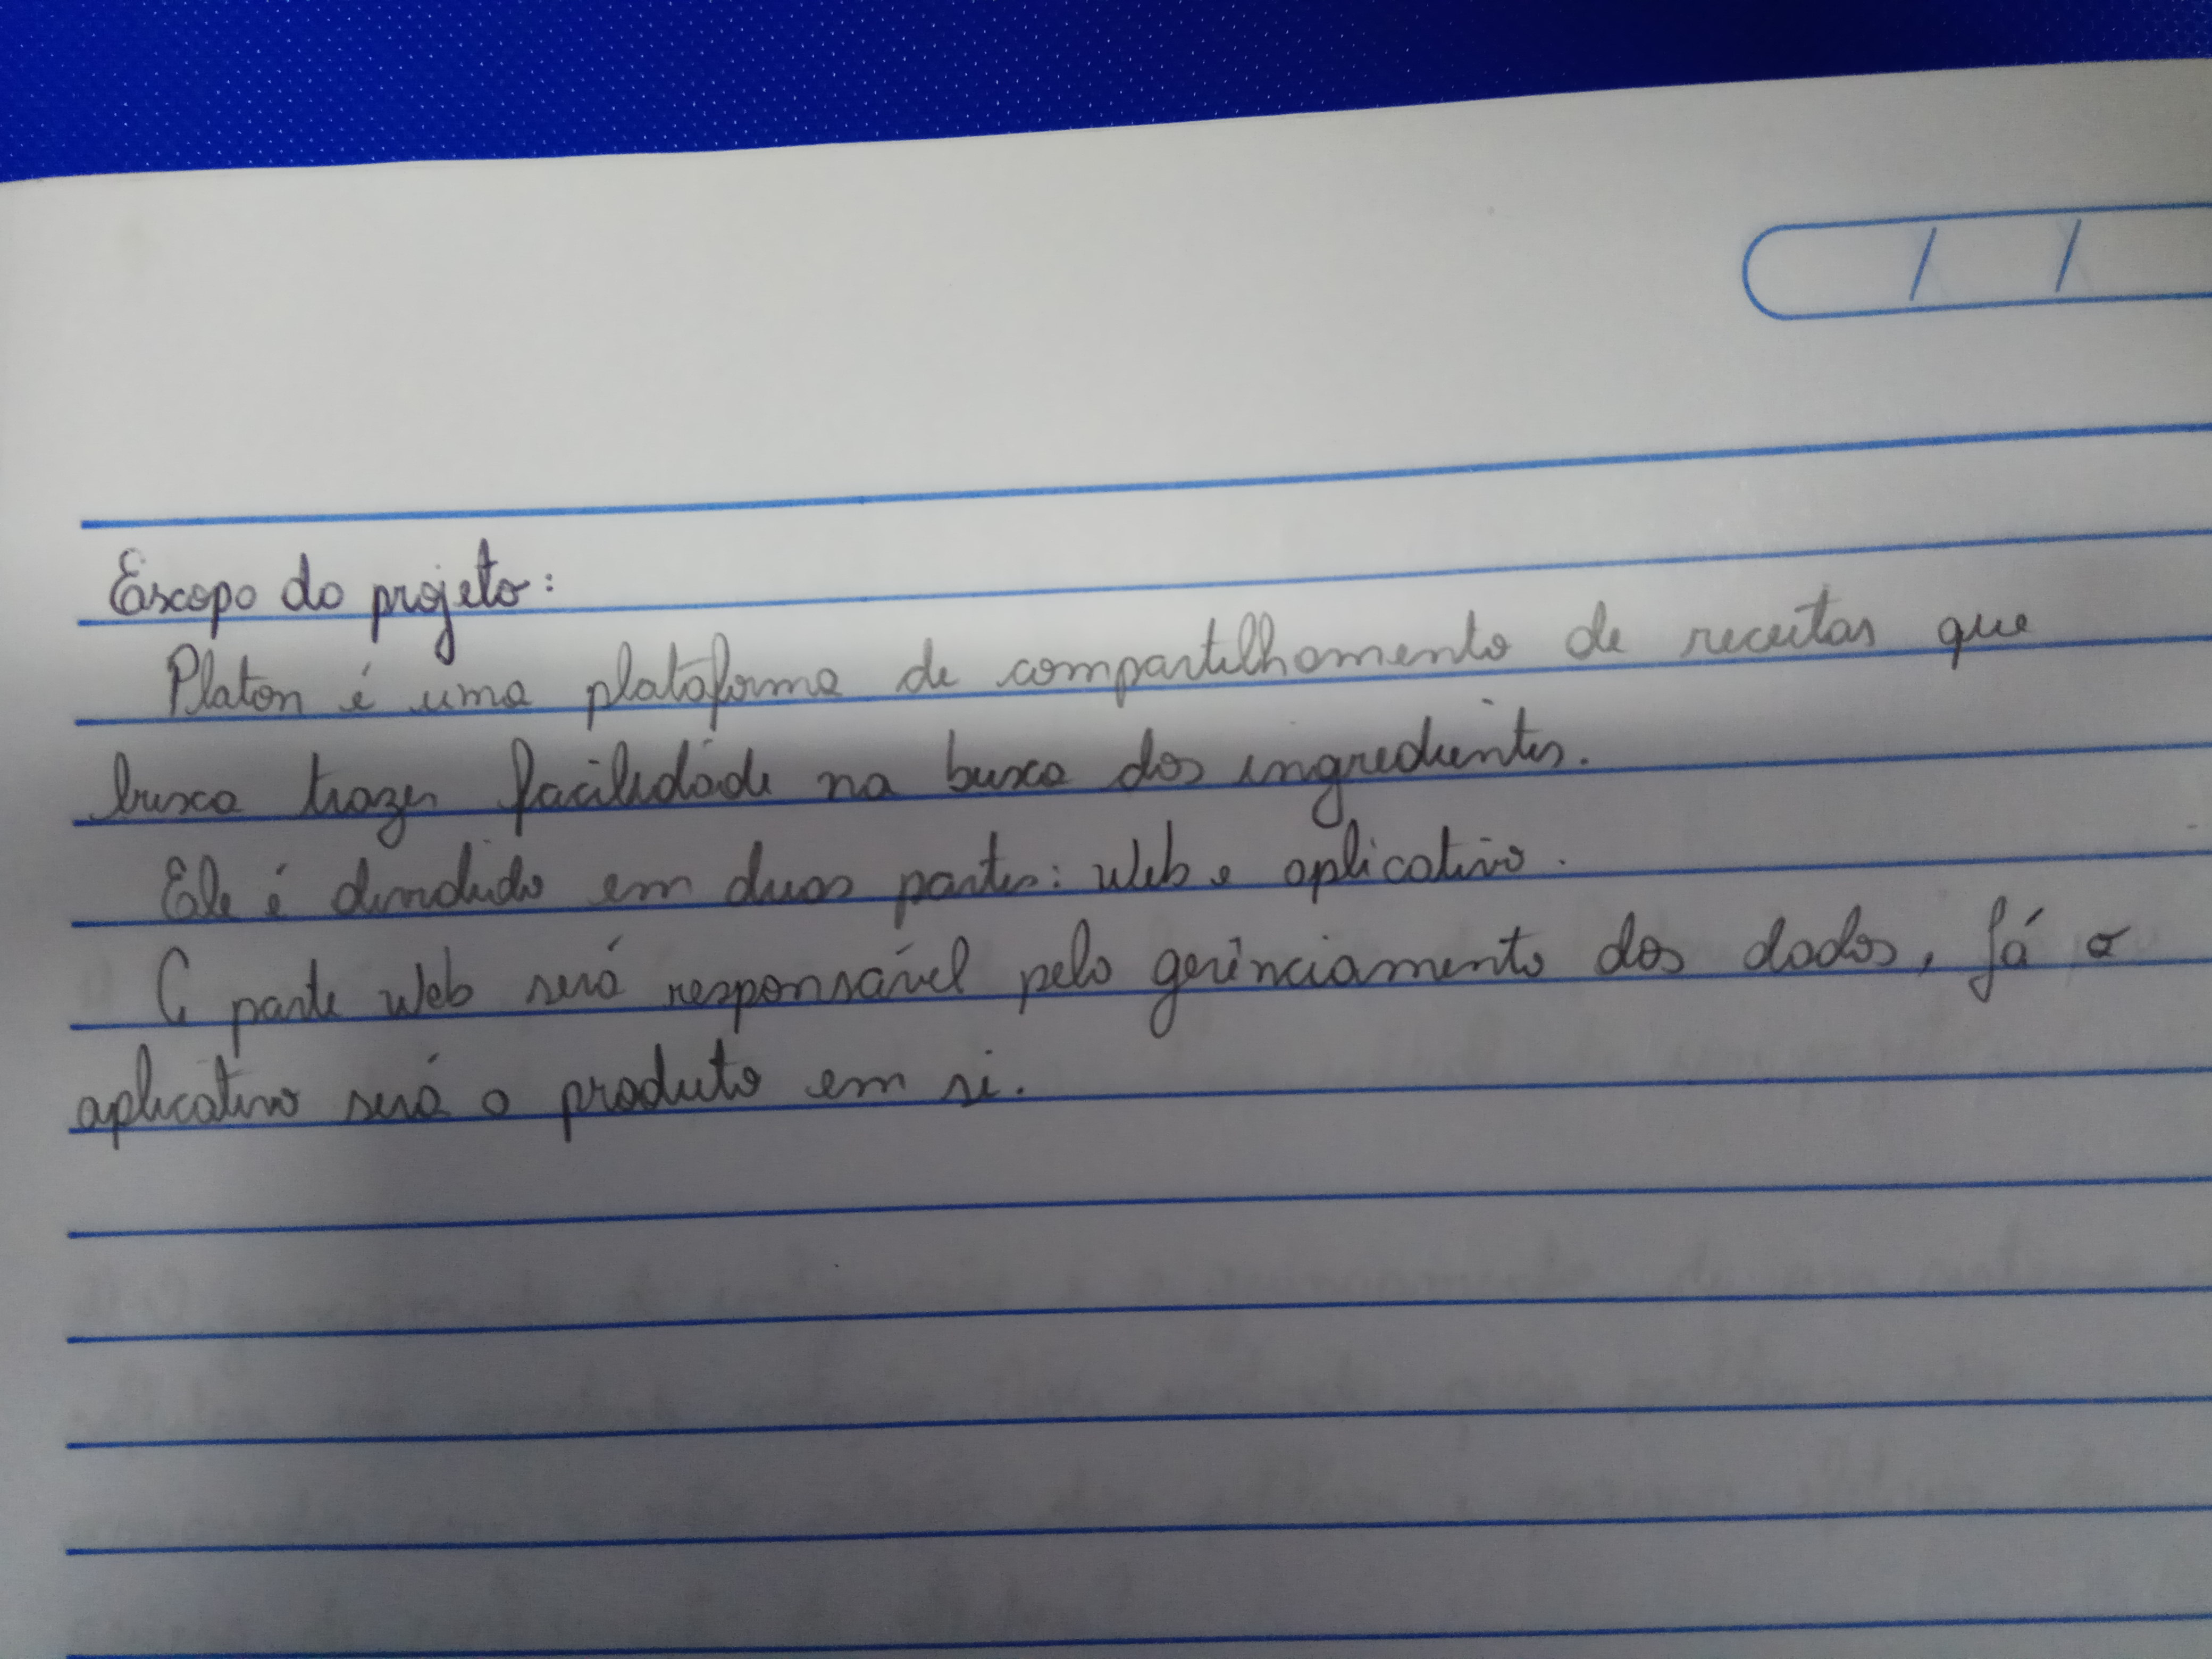 Escopo do projeto:
Platon é uma plataforma de compartilhamento de receitas que
busca trazer facilidade na busca dos ingredientes.
Ele é dividido em duas partes: Web e aplicativo.
A parte Web será responsável pelo gerênciamento dos dados, Já o
aplicativo será o produto em si.